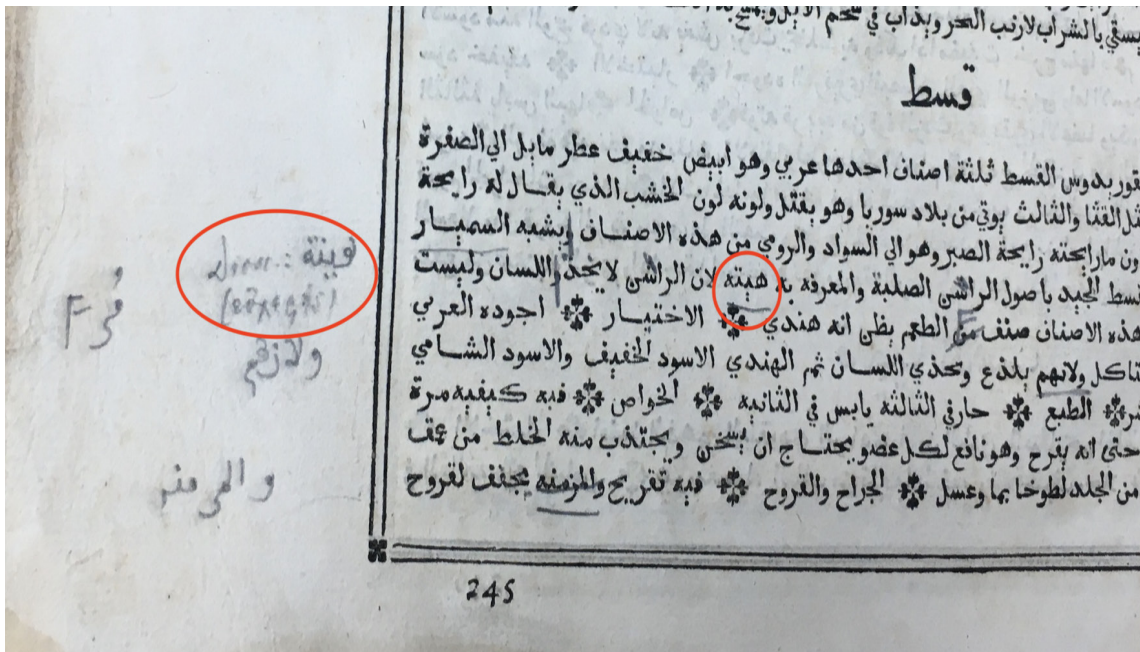 يسقي بالشراب لارنب البحر ويذاب في شحم الايل ويمسح به
قسط
قوريدوس القسط ثلثة اصناف احدها عربي وهو ابيض خفيف عطر مايل الي الصفرة
قل القثا والثالث يوتي من بلاد سوريا وهو يقتل ولونه لون الخشب الذي يقال له رايحة
ون مارايحته رايحة الصبر وهو الي السواد والرومي من هذه الاصناف ويشبه السميار
سط الجيد باصول الراسن الصلبة والمعرفه به هيته لان الراسن لا يحذ واللسان وليست
هذه الاصناف صنف من الطعم يظن انه هندي الاختيار اجوده العربي
تاكل ولانهم يلذع ويحذي اللسان ثم الهندي الاسود الخفيف والاسود الشامي
مر الطبع حار في الثالثه يابس في الثانيه الخواص فيه كيفيه مرة
حتي انه يقرح وهو نافع لكل عضو يحتاج ان يسخن ويجتذب منه الخلط من عمق
من الجلد لطوخا بما وعسل الجراح والقروح فيه تقريح والمزمنه يجفف لقروح
هينة :
F
ولا زفم
245